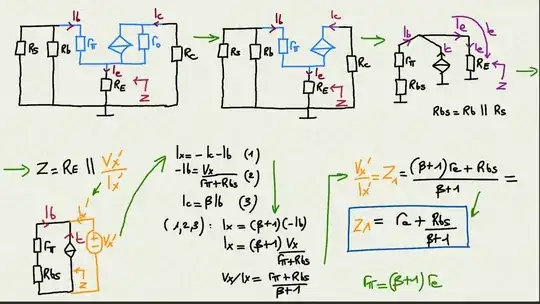 Ib
Ic
Rs
Rb
rπ
ro
Rc
Ie
RE
Z
Ib
Ic
Rs
Rb
rπ
Rc
Ie
RE
Z
Ib
Ie
Ic
Ie
rπ
RE
Rbs
Z
Rbs = Rb || Rs
Z = RE || Vx' / Ix'
Ib
Ix'
rπ
Ic
Vx'
Rbs
Z
Ix = -Ic - Ib (1)
-Ib = Vx / rπ+Rbs (2)
Ic = βIb (3)
(1,2,3): Ix = (β+1)(-Ib)
Ix = (β+1) Vx / rπ+Rbs
Vx/Ix = rπ+Rbs / β+1
Vx' / Ix' = Z1 = (β+1)re + Rbs / β+1 =
Z1 = re + Rbs / β+1
rπ = (β+1) re